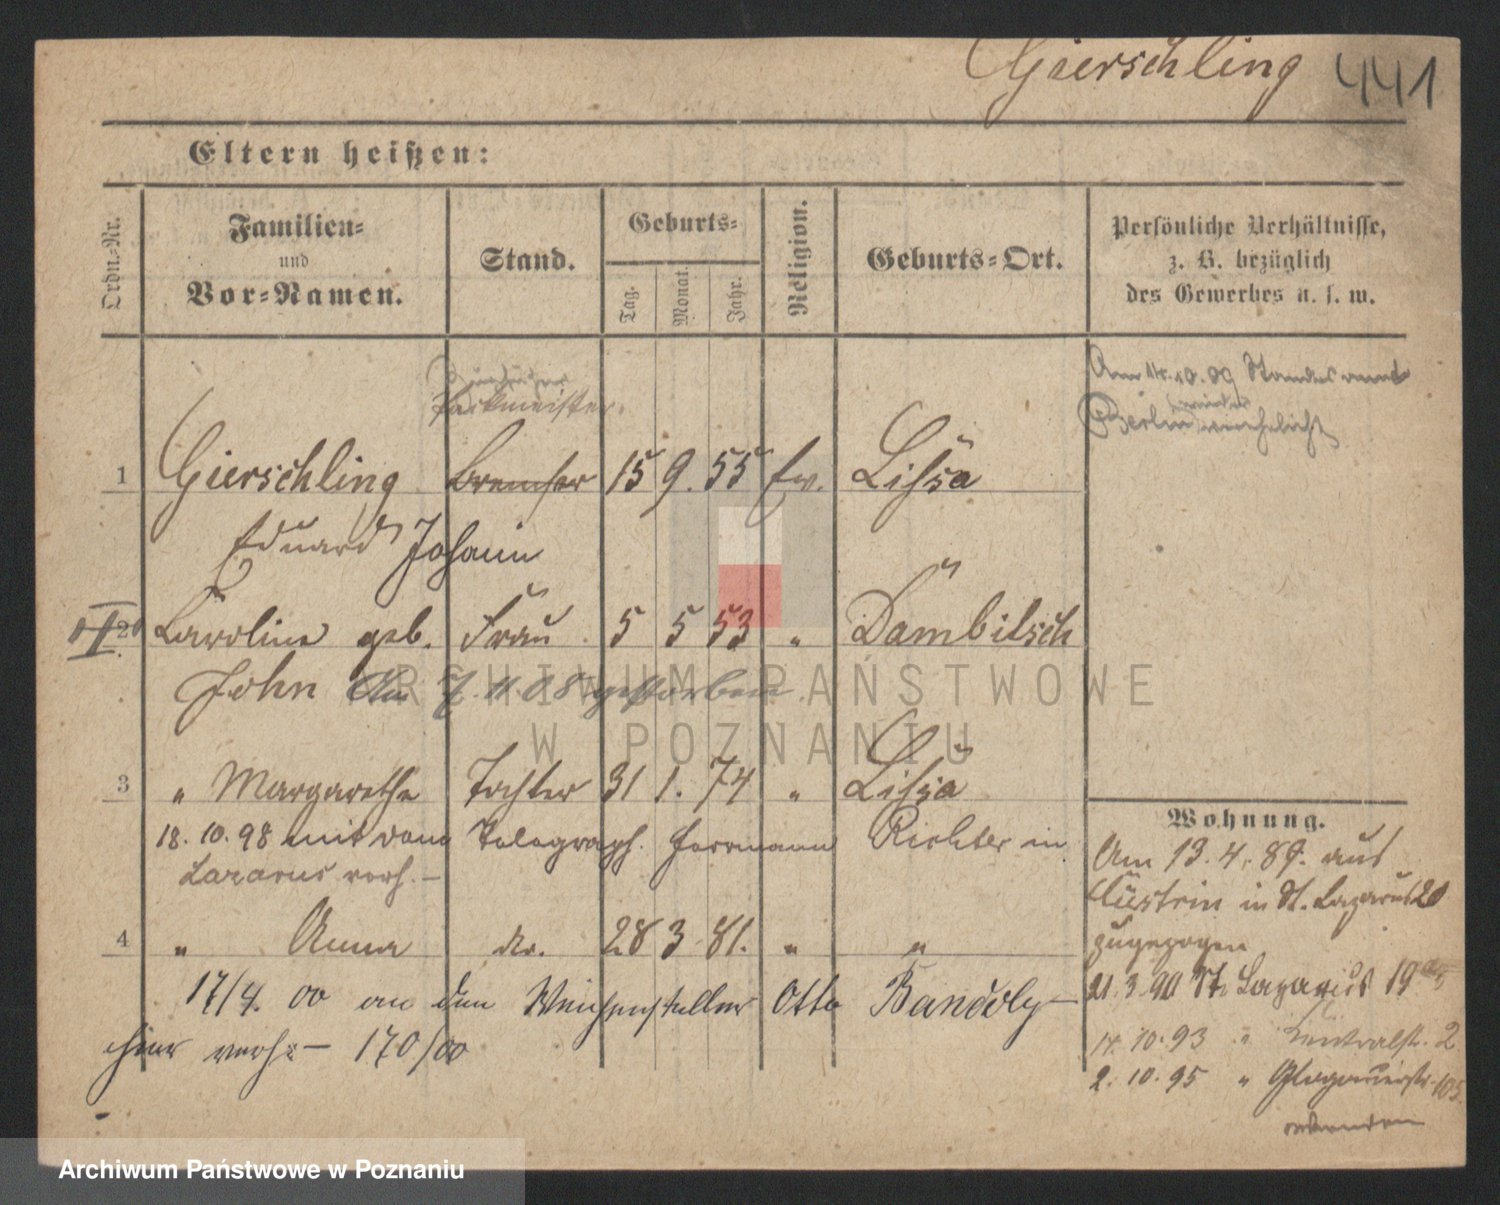 Gierschling 441
Eltern heißen:
Ordn.-Nr.
Familien-
und
Vor-Namen.
Stand.
Geburts-
Tag.
Monat.
Jahr.
Religion.
Geburts-Ort.
Persönliche Verhältnisse,
z. B. bezüglich
des Gewerbes u. s. w.
Packmeister
Am 14.10.09 Standesamt
Berlin wieder verehelicht
1 Gierschling Bremser 15 9. 55 Ev. Lissa
Eduard Johann
2 Caroline geb. Frau 5 5 53 " Dambitsch
John Am 7.11.08 gestorben
3 " Margarethe Tochter 31 1. 74 " Lissa
18. 10. 98 mit dem Telegraph. Herrmann Richter in
Lazarus verh. –
4 " Anna do. 28 3 81. " "
17/4. 00 an den Weichensteller Otto
hier verh. – 170/00
Wohnung.
Am 13. 4. 89. aus
Cüstrin in St. Lazarus 20
zugezogen
21. 3. 90 St. Lazarus 19
14. 10. 93 " Zentralstr. 2
2. 10. 95 " Glogauerstr. 105
ARCHIWUM PAŃSTWOWE
W POZNANIU
Archiwum Państwowe w Poznaniu